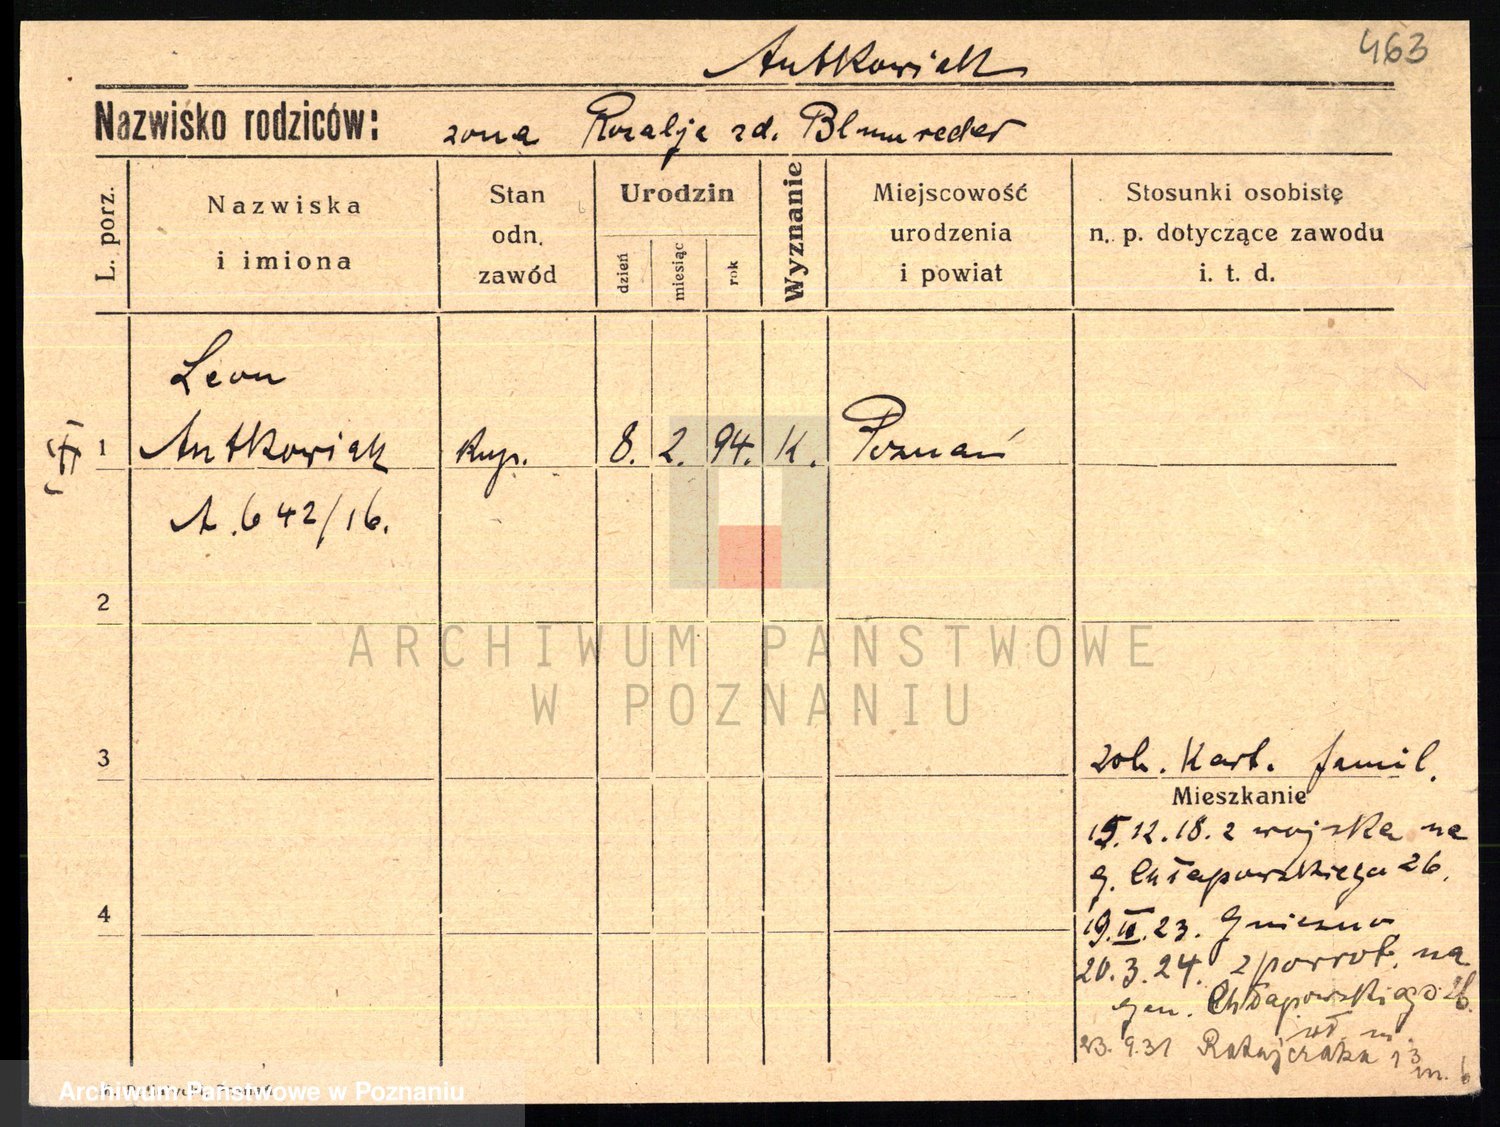 463
Antkowiak
Nazwisko rodziców: zona Rozalja zd.
L. porz.
Nazwiska
i imiona
Stan
odn.
zawód
Urodzin
dzień
miesiąc
rok
Wyznanie
Miejscowość
urodzenia
i powiat
Stosunki osobistę
n. p. dotyczące zawodu
i. t. d.
Leon
1 Antkowiak Kup. 8. 2. 94. K. Poznań
A. 642/16.
2
3
zob. Kart. famil.
Mieszkanie
15.12.18. z wojska na
g. Chłapowskiego 26.
4
19.II.23. Gniezno
20.3.24. zpowrot. na
gen. Chłapowskiego 26.
23.9.31 Ratajczaka 13
m. 6
ARCHIWUM PAŃSTWOWE
W POZNANIU
Archiwum Państwowe w Poznaniu